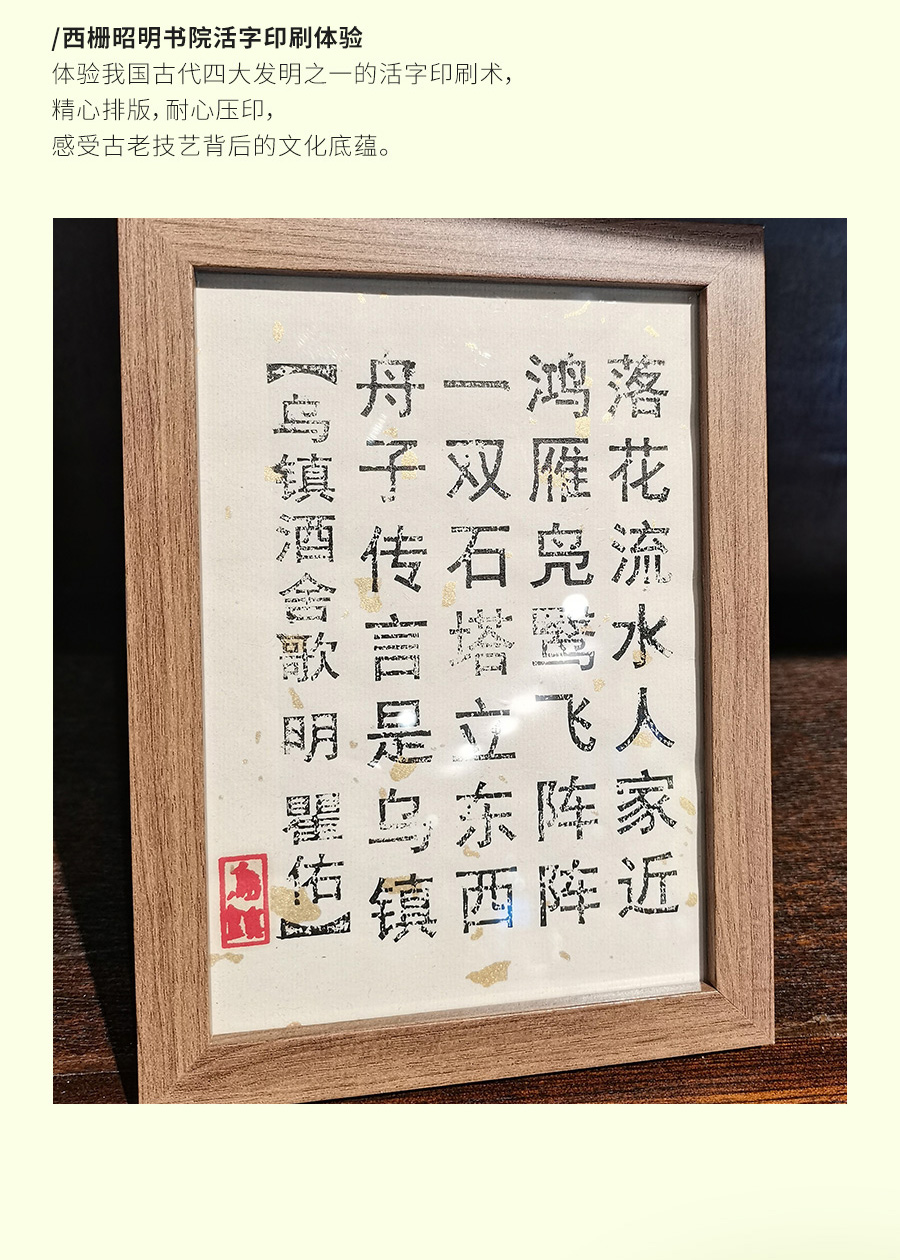 /西栅昭明书院活字印刷体验
体验我国古代四大发明之一的活字印刷术，
精心排版，耐心压印，
感受古老技艺背后的文化底蕴。
落花流水人家近
鸿雁凫鹥飞阵阵
一双石塔立东西
舟子传言是乌镇
【乌镇酒舍歌 明 瞿佑】